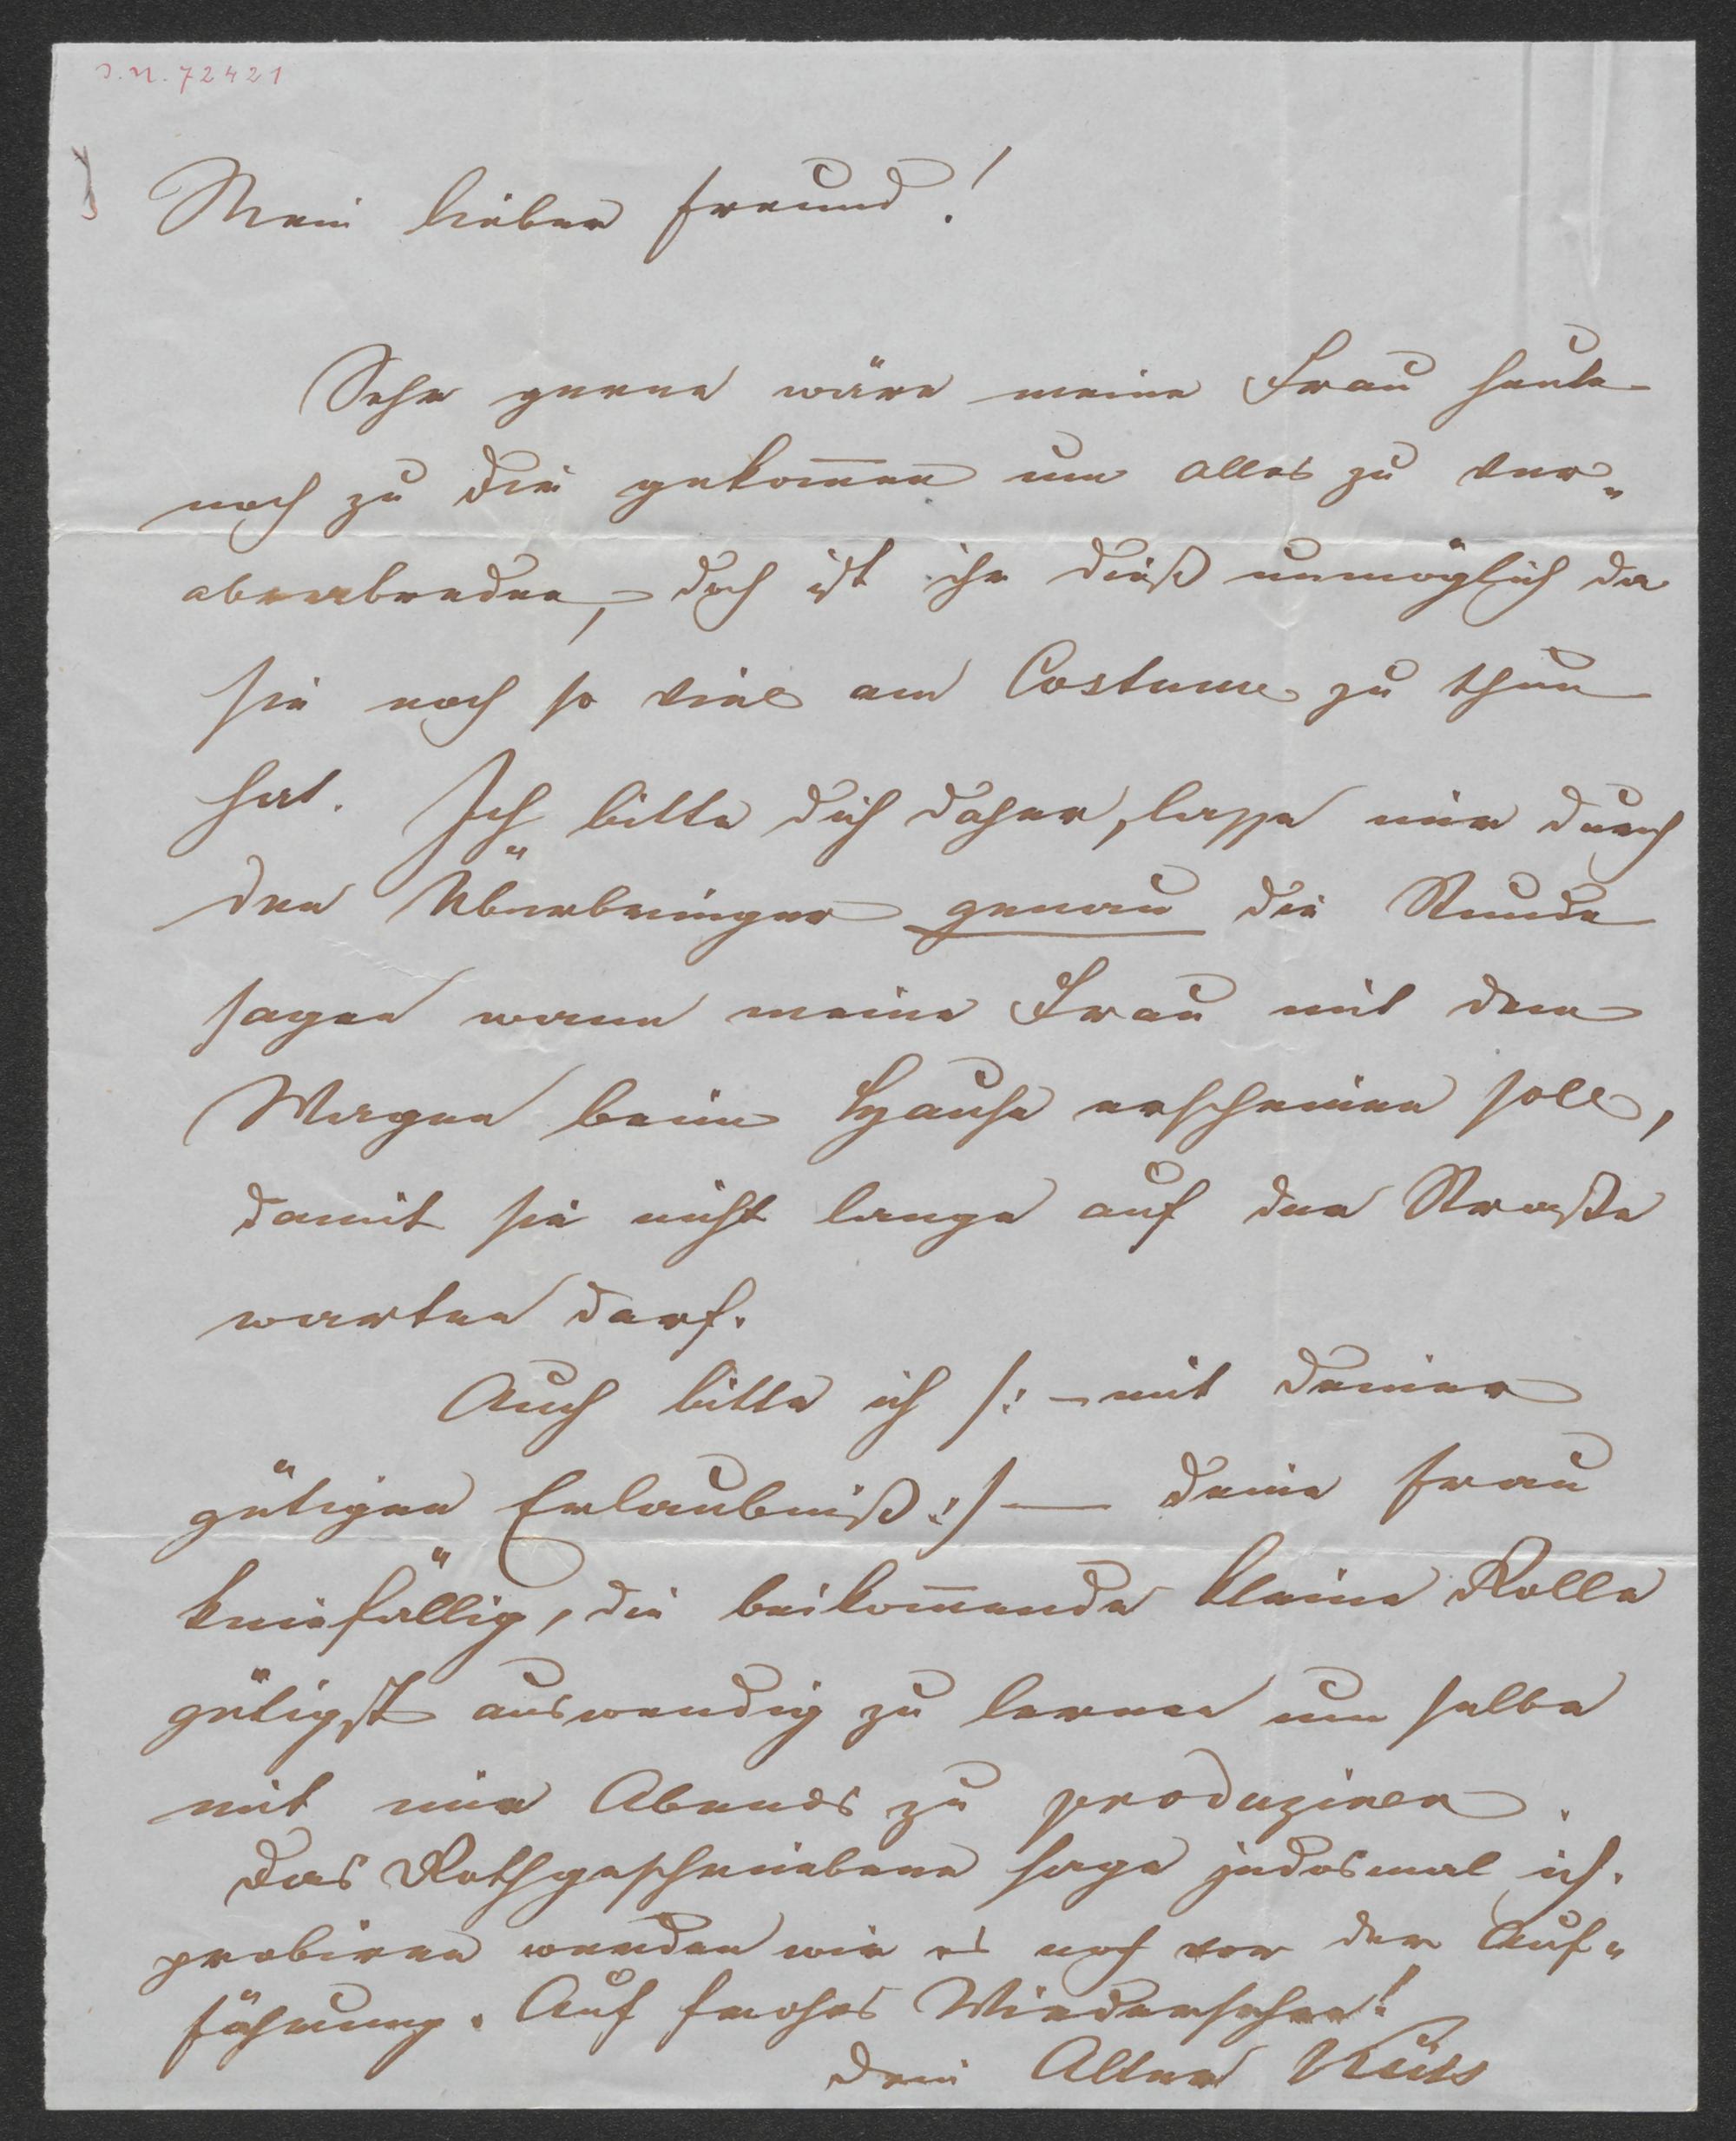 J.N. 72421
Mein lieber Freund!
Sehr gerne wäre meine Frau heute
noch zu dir gekom̅en um alles zu ver„
abreden, doch ist ihr dieß unmöglich da
sie noch so viel am Costume zu thun
hat. Ich bitte dich daher, lasse mir durch
den Überbringer genau die Stunde
sagen wann meine Frau mit dem
Wagen beim Hause erscheinen soll,
damit sie nicht lange auf der Straße
warten darf.
Auch bitte ich /: – mit deiner
gütigen Erlaubniß :/ — deine Frau
kniefällig, die beikom̅ende kleine Rolle
gütigst auswendig zu lernen um selbe
mit mir Abends zu produziren.
Das Rothgeschriebene sage jedesmal ich.
probiren werden wir es noch vor der Auf„
führung. Auf frohes Wiedersehen!
Dein Alter